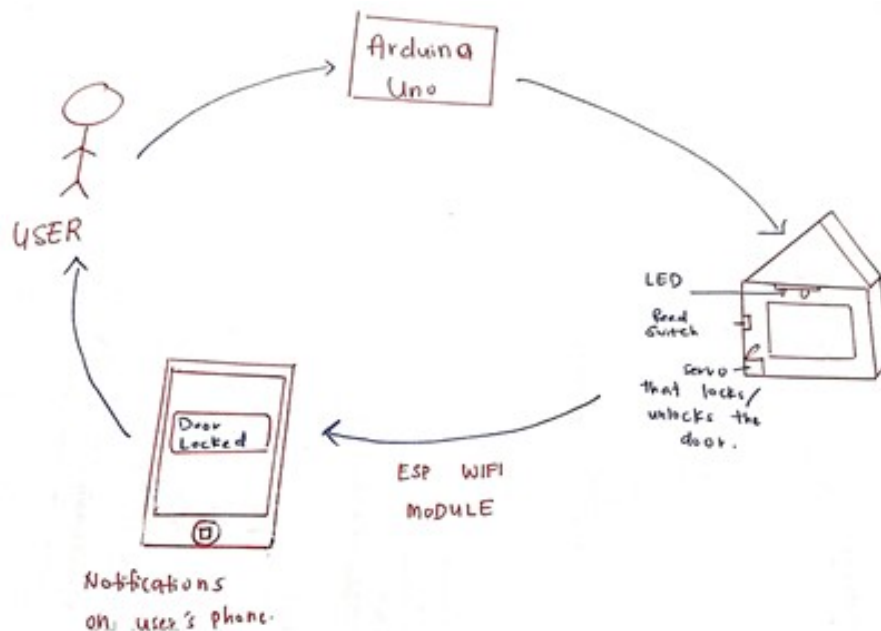 Arduina
Uno
USER
LED
Reed
Switch
servo
that locks/
unlocks the
door.
Door
Locked
ESP WIFI
MODULE
Notifications
on user's phone.